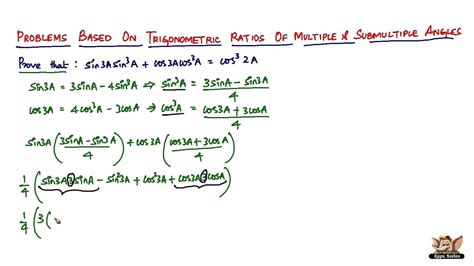 PROBLEMS BASED ON TRIGONOMETRIC RATIOS OF MULTIPLE & SUBMULTIPLE ANGLES
Prove that : sin3A sin³A + cos3A cos³A = cos³ 2A
sin3A = 3sinA - 4sin³A ⇔ sin³A = (3sinA - sin3A)/4
cos3A = 4cos³A - 3cosA → cos³A = (cos3A + 3cosA)/4
sin3A ((3sinA - sin3A)/4) + cos3A ((cos3A + 3cosA)/4)
1/4 (sin3A 3sinA - sin²3A + cos²3A + cos3A 3cosA)
1/4 (3(
Apps Series